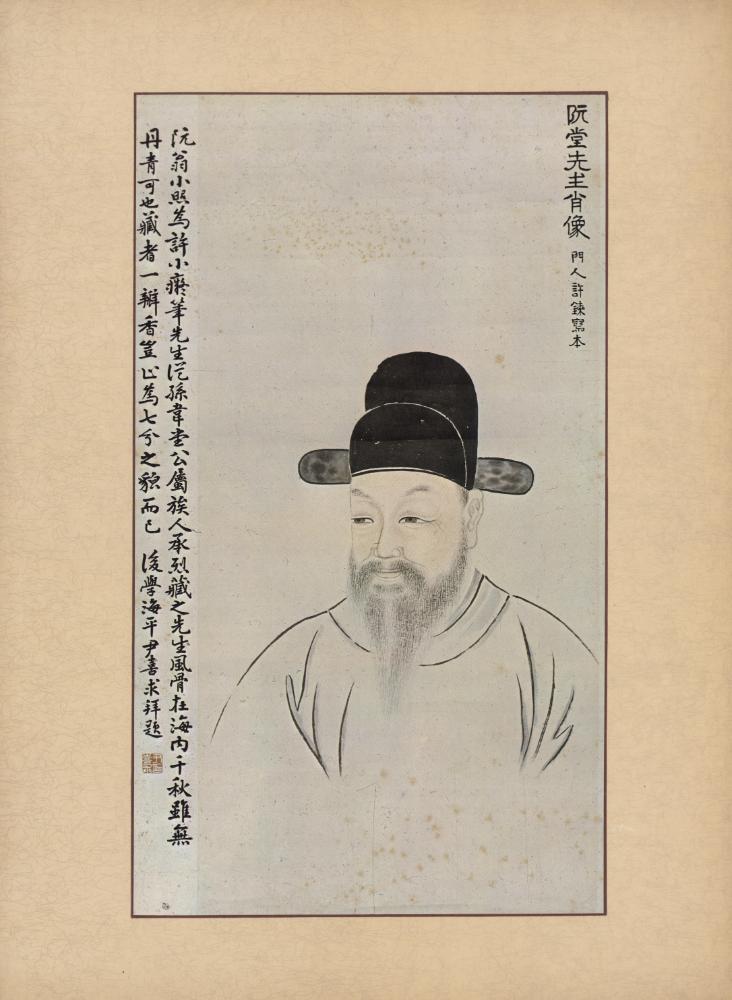 阮堂先生肖像
門人許鍊寫本
阮翁小照為許小癡筆先生從孫韋堂公屬族人承烈藏之先生風骨在海內千秋雖無
丹青可也藏者一瓣香豈止為七分之貌而已 後學海平尹喜求拜題